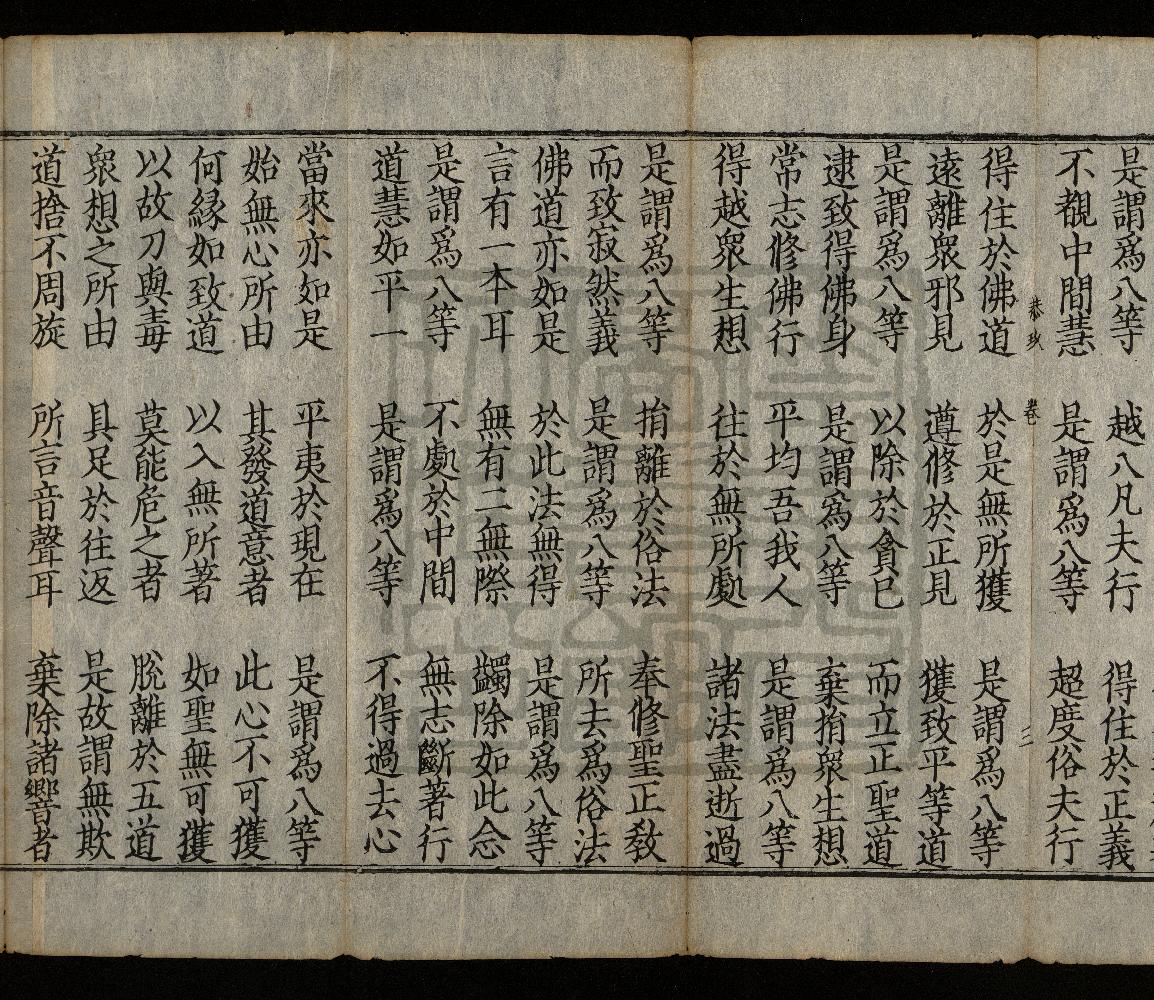 是謂爲八等　越八凡夫行　得住於正義
不覩中間慧　是謂爲八等　超度俗夫行
恭
得住於佛道　於是無所獲　是謂爲八等
遠離衆邪見　遵修於正見　獲致平等道
是謂爲八等　以除於貪已　而立正聖道
逮致得佛身　是謂爲八等　棄捐衆生想
常志修佛行　平均吾我人　是謂爲八等
得越衆生想　往於無所處　諸法盡逝過
是謂爲八等　捐離於俗法　奉修聖正教
而致寂然義　是謂爲八等　所去爲俗法
佛道亦如是　於此法無得　是謂爲八等
言有一本耳　無有二無際　蠲除如此念
是謂爲八等　不處於中間　無志斷著行
道慧如平一　是謂爲八等　不得過去心
當來亦如是　平夷於現在　是謂爲八等
始無心所由　其發道意者　此心不可獲
何緣如致道　以入無所著　如聖無可獲
以故刀與毒　莫能危之者　脫離於五道
衆想之所由　具足於往返　是故謂無欺
道捨不周旋　所言音聲耳　棄除諸響者